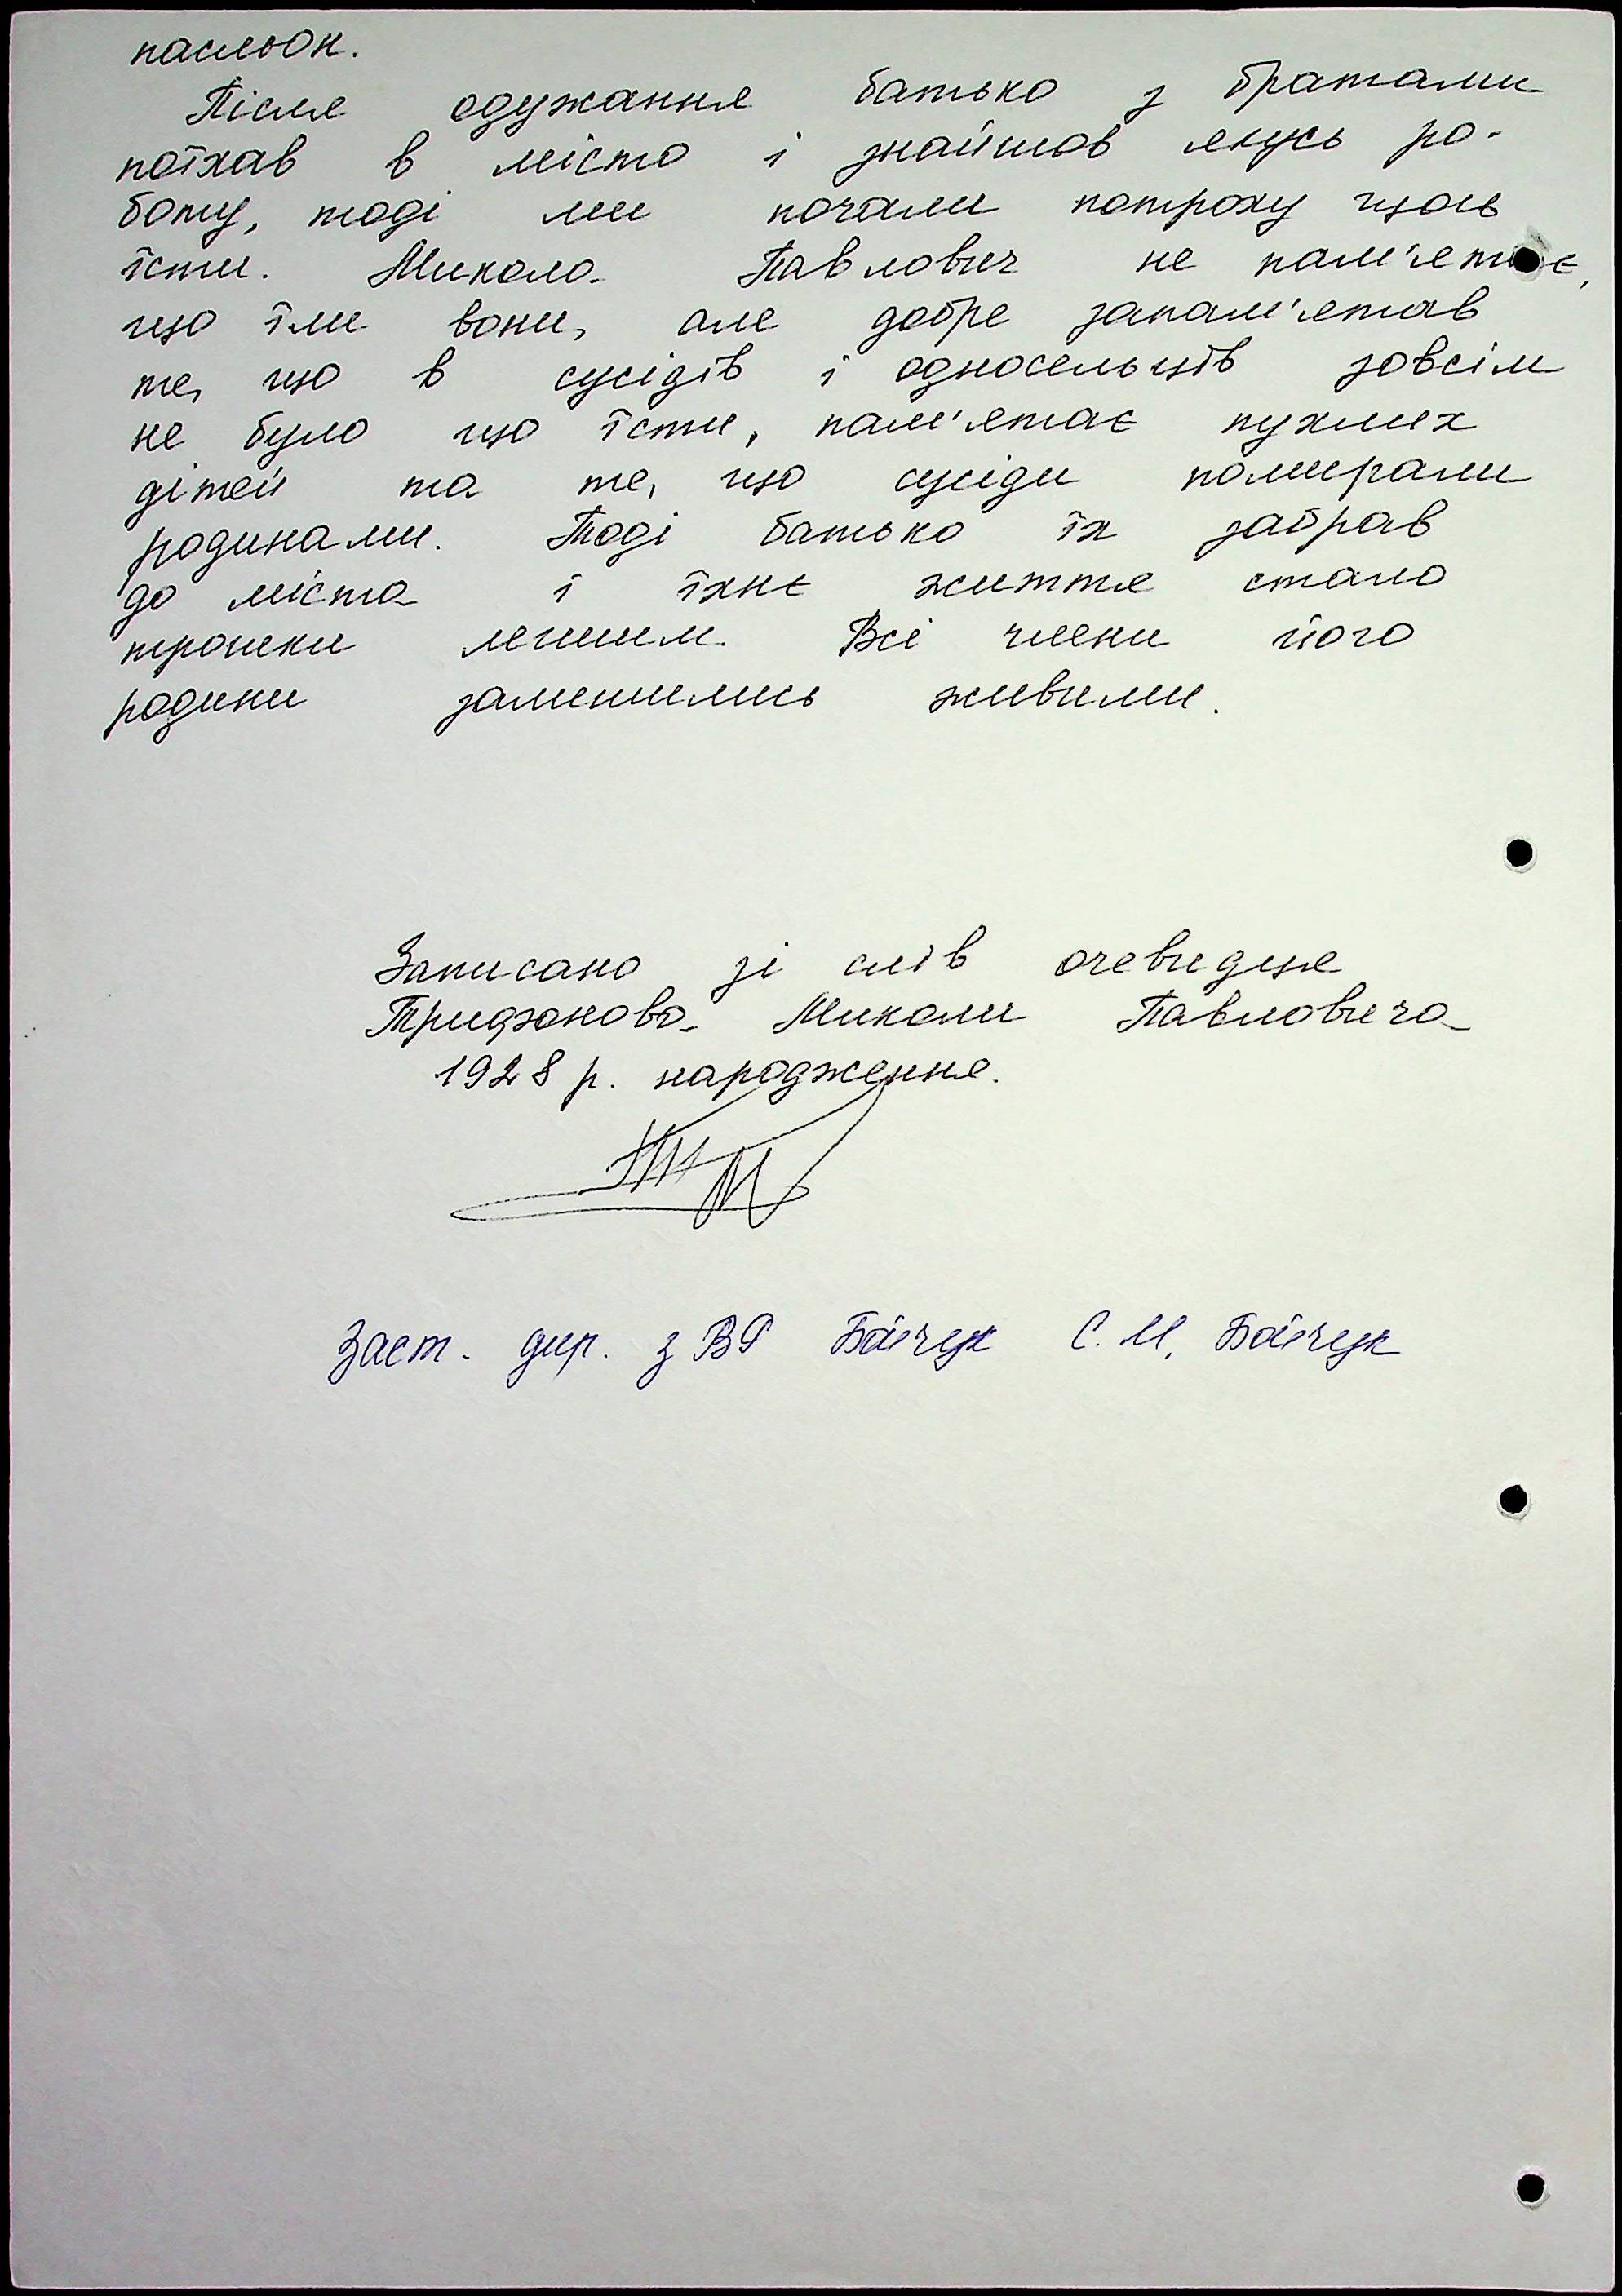 пасльон.
Після одужання батько з братами
поїхав в місто і знайшов якусь ро-
боту, тоді ми почали потроху щось
їсти. Микола Павлович не пам'ятає,
що їли вони, але добре запам'ятав
те, що в сусідів і односельців зовсім
не було що їсти, пам'ятає пухлих
дітей та те, що сусіди помирали
родинами. Тоді батько їх забрав
до міста і їхнє життя стало
трошки легшим. Всі члени його
родини залишились живими.
Записано зі слів очевидця
Триджанова Миколи Павловича
1928 р. народження.
Заст. дир. з ВР Бойчук С. М. Бойчук